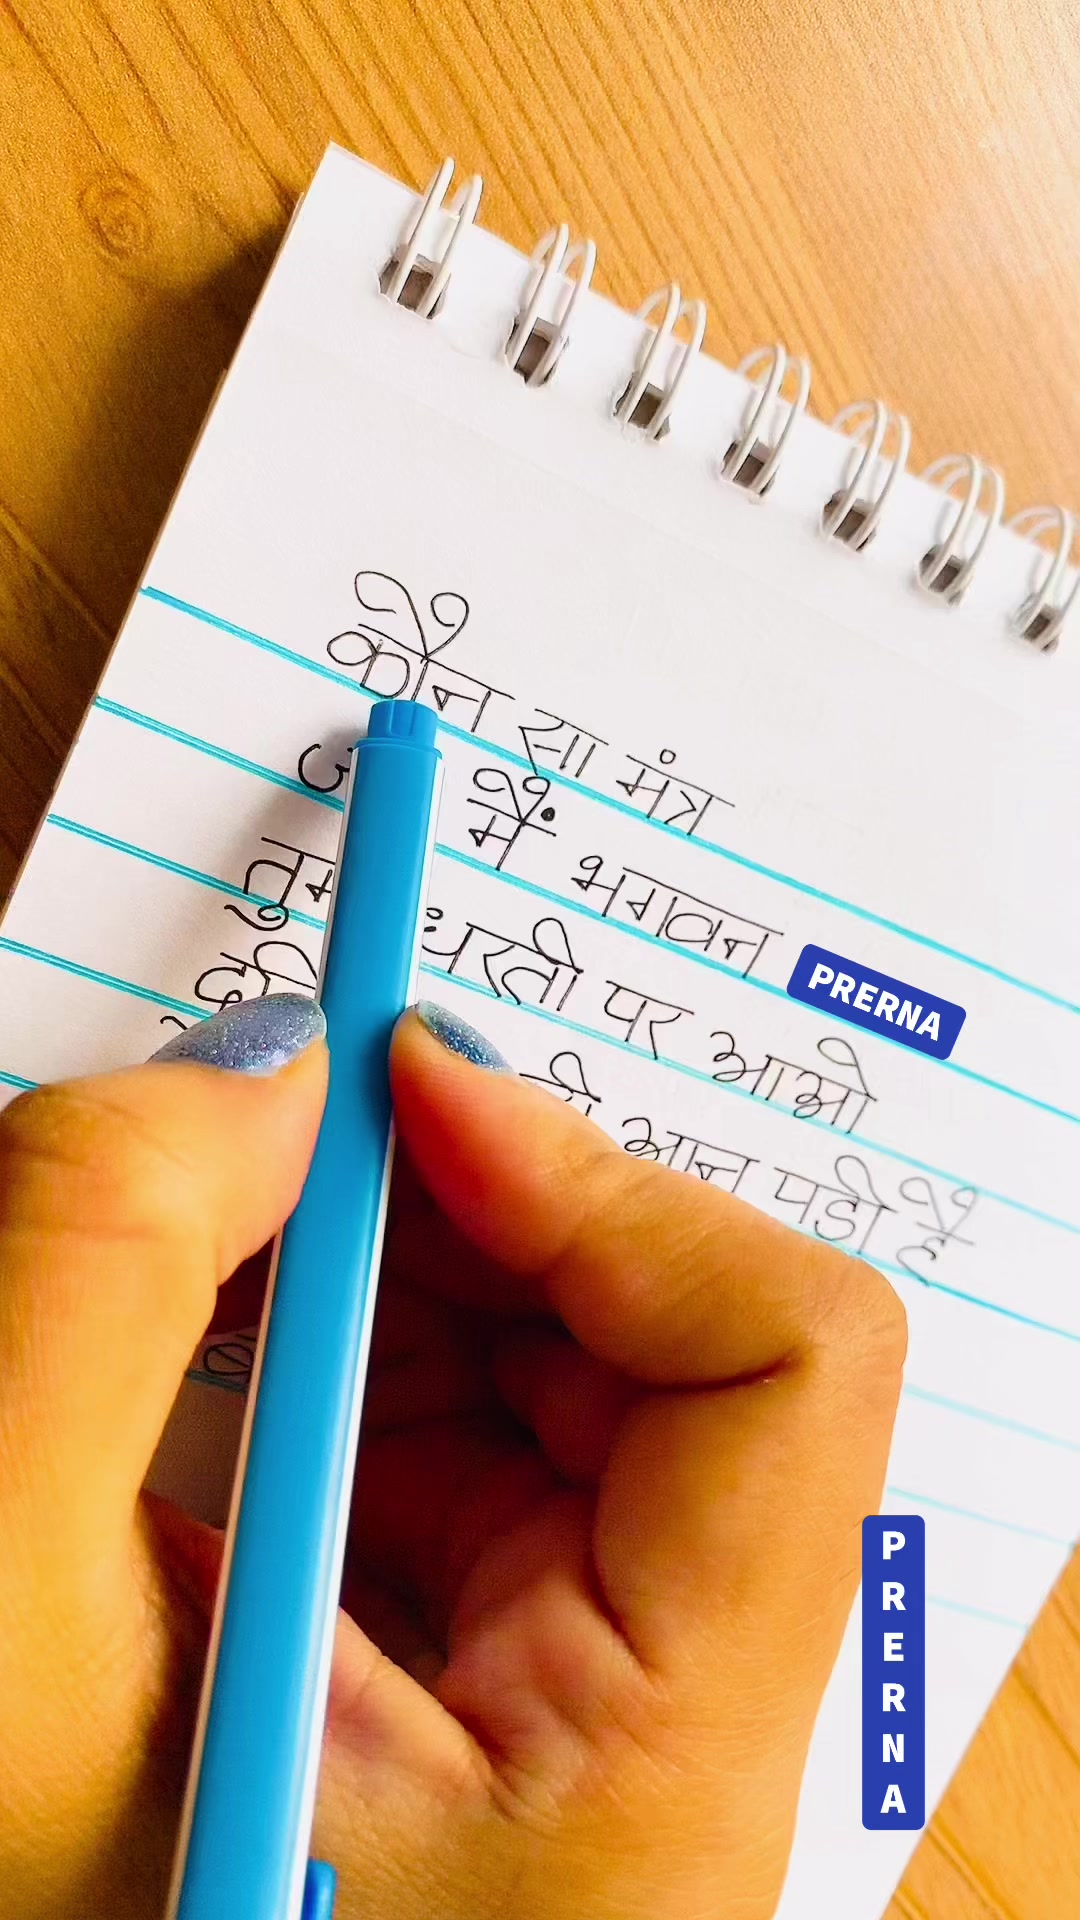 कौन सा मंत्र
मैं भगवन
धरती पर आओ
आन पडी है
PRERNA
PRERNA